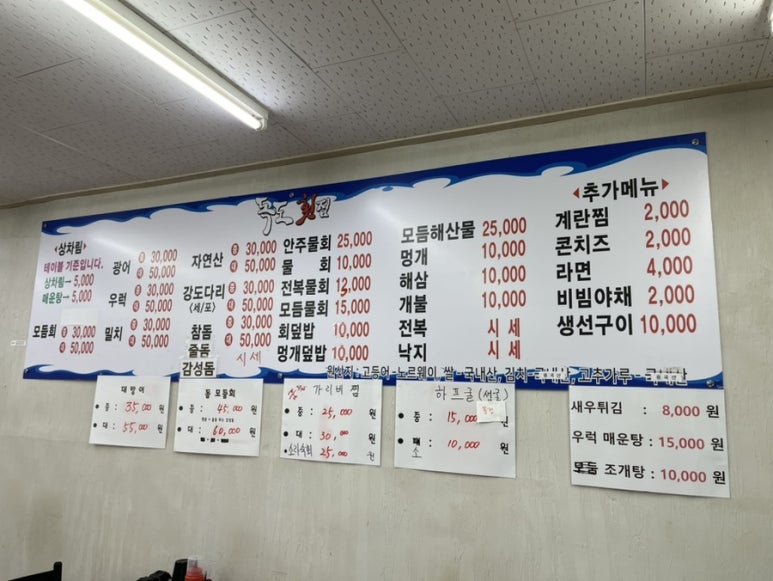 독도횟집
<상차림>
테이블 기준입니다.
상차림→ 5,000
매운탕→ 5,000
모듬회 중 30,000
대 50,000
광어 중 30,000
대 50,000
우럭 중 30,000
대 50,000
밀치 중 30,000
대 50,000
자연산 중 30,000
대 50,000
강도다리 중 30,000
<세/꼬> 대 50,000
참돔 중 30,000
대 50,000
줄돔
감성돔
시세
안주물회 25,000
물 회 10,000
전복물회 13,000
모듬물회 15,000
회덮밥 10,000
멍개덮밥 10,000
모듬해산물 25,000
멍개 10,000
해삼 10,000
개불 10,000
전복 시 세
낙지 시 세
◀추가메뉴▶
계란찜 2,000
콘치즈 2,000
라면 4,000
비빔야채 2,000
생선구이 10,000
원산지: 고등어-노르웨이, 쌀-국내산, 김치-국내산, 고추가루-국내산
대방어
• 중: 35,000 원
• 대: 55,000 원
돔 모듬회
• 중: 45,000 원
• 대: 60,000 원
가리비 찜
• 중: 25,000 원
• 대: 30,000 원
• 소라숙회 25,000 원
하프굴 (생굴)
• 중: 15,000
품절
소 10,000 원
새우튀김 : 8,000 원
우럭 매운탕 : 15,000 원
모둠 조개탕 : 10,000 원